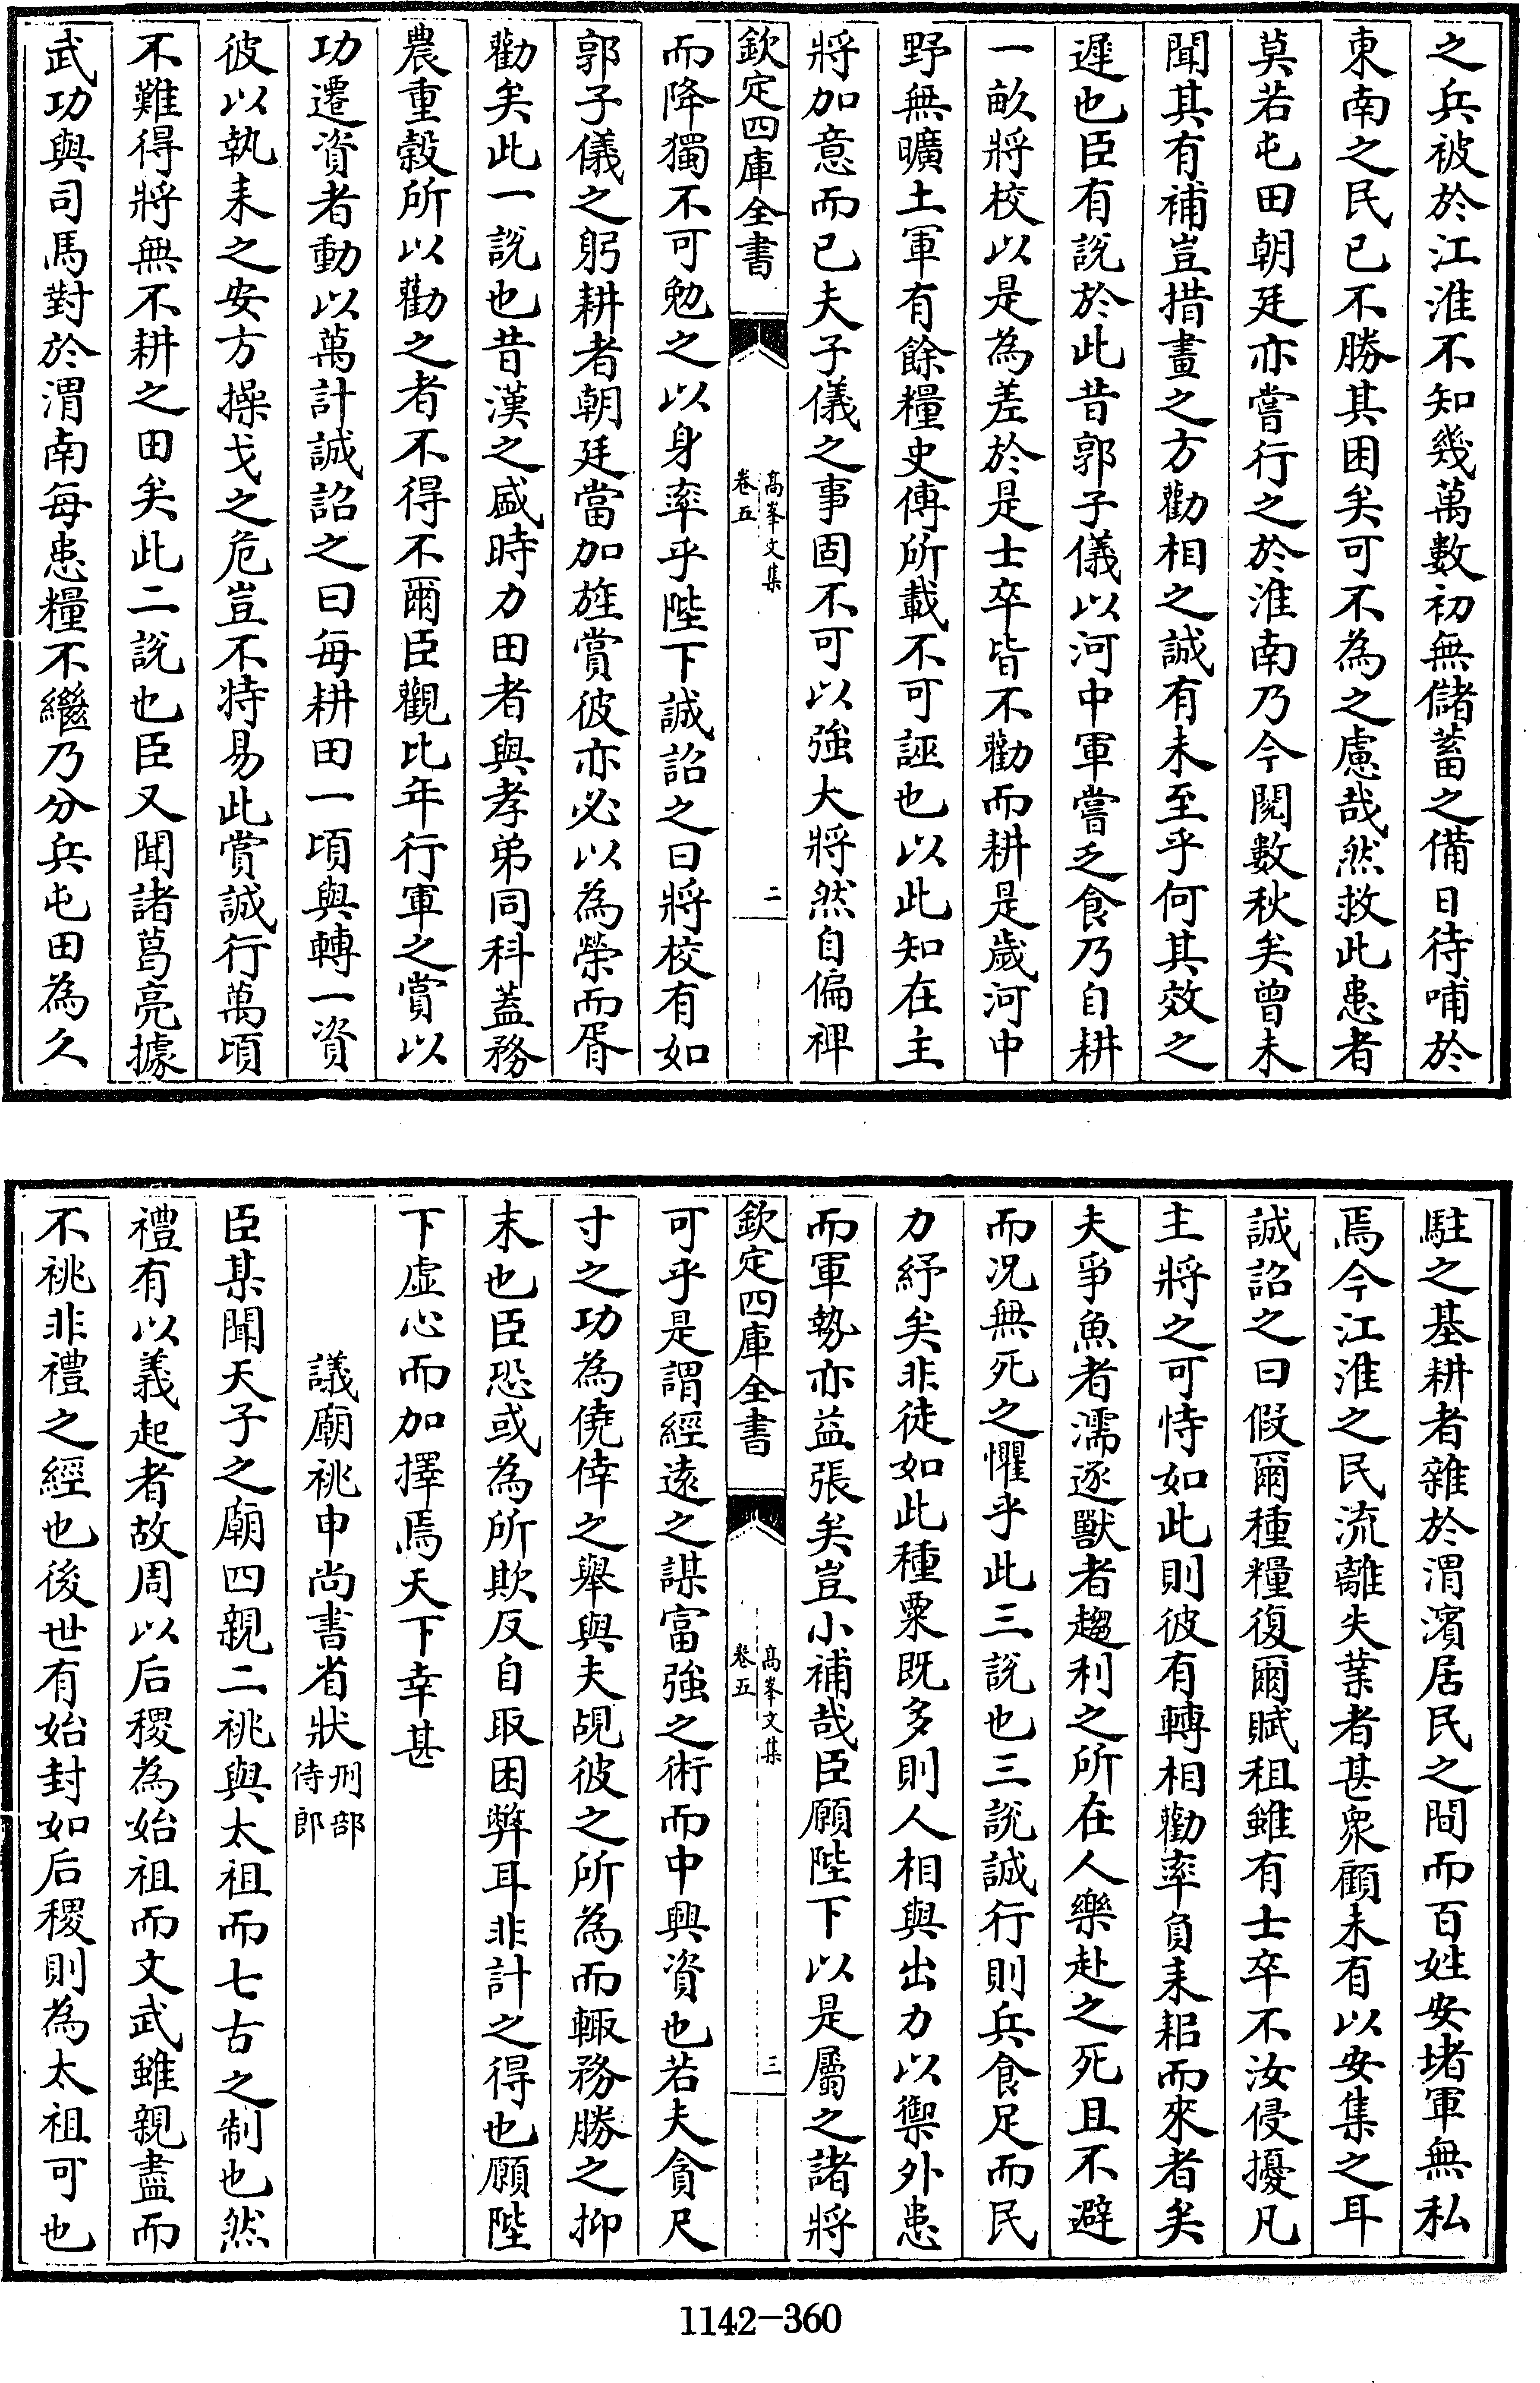 之兵被於江淮不知幾萬數初無儲蓄之備日待哺於
東南之民已不勝其困矣可不為之慮哉然救此患者
莫若屯田朝廷亦嘗行之於淮南乃今閱數秋矣曾未
聞其有補豈措畫之方勸相之誠有未至乎何其效之
遲也臣有說於此昔郭子儀以河中軍嘗乏食乃自耕
一畝將校以是為差於是士卒皆不勸而耕是歲河中
野無曠土軍有餘糧史傳所載不可誣也以此知在主
將加意而已夫子儀之事固不可以強大將然自偏裨
欽定四庫全書
高峯文集
卷五
二
而降獨不可勉之以身率乎陛下誠詔之曰將校有如
郭子儀之躬耕者朝廷當加旌賞彼亦必以為榮而胥
勸矣此一說也昔漢之盛時力田者與孝弟同科蓋務
農重穀所以勸之者不得不爾臣觀比年行軍之賞以
功遷資者動以萬計誠詔之曰每耕田一頃與轉一資
彼以執耒之安方操戈之危豈不特易此賞誠行萬頃
不難得將無不耕之田矣此二說也臣又聞諸葛亮據
武功與司馬對於渭南每患糧不繼乃分兵屯田為久
駐之基耕者雜於渭濱居民之間而百姓安堵軍無私
焉今江淮之民流離失業者甚衆顧未有以安集之耳
誠詔之曰假爾種糧復爾賦租雖有士卒不汝侵擾凡
主將之可恃如此則彼有轉相勸率負耒耜而來者矣
夫爭魚者濡逐獸者趨利之所在人樂赴之死且不避
而况無死之懼乎此三說也三說誠行則兵食足而民
力紓矣非徒如此種粟既多則人相與出力以禦外患
而軍勢亦益張矣豈小補哉臣願陛下以是屬之諸將
欽定四庫全書
高峯文集
卷五
三
可乎是謂經遠之謀富強之術而中興資也若夫貪尺
寸之功為僥倖之舉與夫覘彼之所為而輙務勝之抑
末也臣恐或為所欺反自取困弊耳非計之得也願陛
下虛心而加擇焉天下幸甚
議廟祧申尚書省狀刑部侍郎
臣某聞天子之廟四親二祧與太祖而七古之制也然
禮有以義起者故周以后稷為始祖而文武雖親盡而
不祧非禮之經也後世有始封如后稷則為太祖可也
1142-360